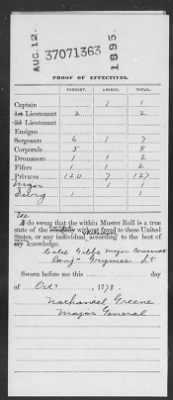 AUG. 12. 37071363 1895.
PROOF OF EFFECTIVES.
PRESENT. ABSENT. TOTAL.
Captain 1 1
1st Lieutenant 2 2
2d Lieutenant
Ensigns
Sergeants 6 1 7
Corporals 8 8
Drummers 1 1 2
Fifers 1 1 2
Privates 120 7 127
Major 1 1
Surg 1 1
We
I do swear that the within Muster Roll is a true
state of the without fraud to these United
States, or any individual, according to the best of
my knowledge.
Caleb Gibbs Major Commdt
Benj Grymes Lt
Sworn before me this day
of Oct 1778.
Nathanael Greene
Major General